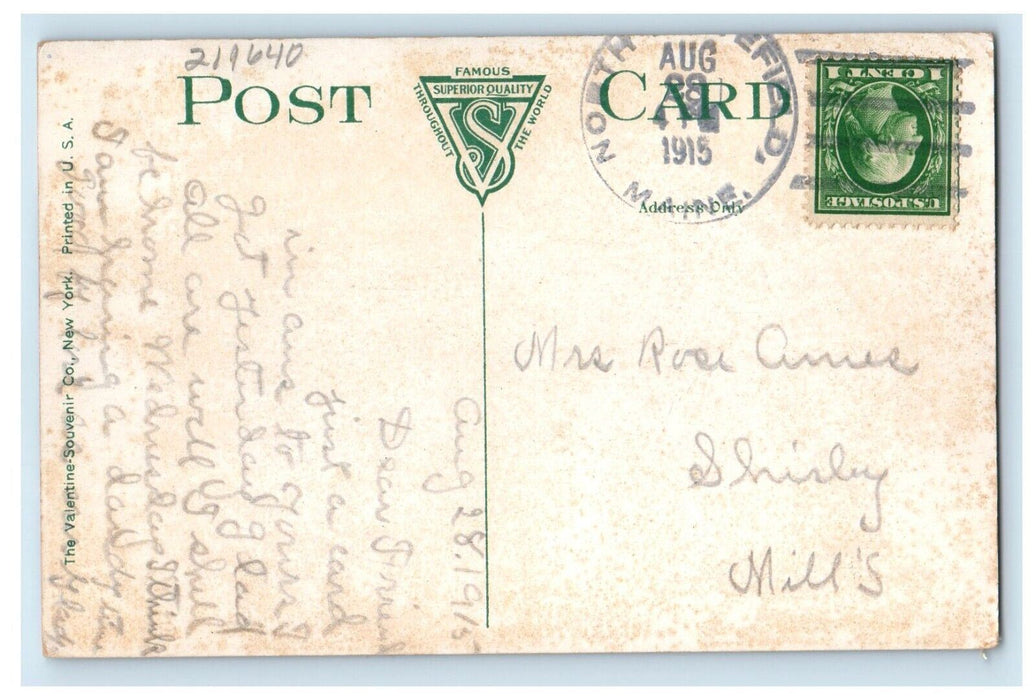 211640
POST CARD
FAMOUS
SUPERIOR QUALITY
THROUGHOUT THE WORLD
VS
NORTH FIELD, MAINE.
AUG
28
1915
1 CENT 1
U.S. POSTAGE
Address Only
Mrs Rose Ames
Shirley
Mill's
Aug 28, 1915
Dear Friend
Just a card
in ans to yours
got yesterday glad
all are well shall
be home Wednesday I think
I am having a dandy time
The Valentine-Souvenir Co., New York. Printed in U. S. A.